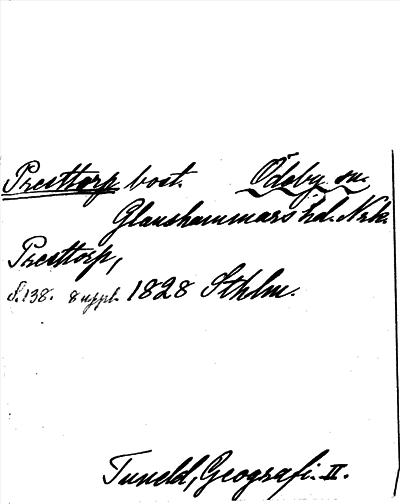 Presttorp bost. Ödeby sn.
Glanshammars hd. Nrk.
Presttorp,
s. 138. 8 uppl. 1828 Sthlm.
Tuneld, Geografi. II.